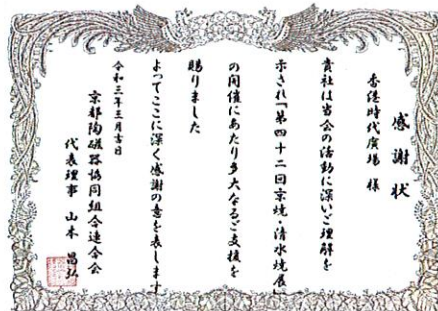 感謝状
香港時代廣場 様
貴社は当会の活動に深いご理解を
示され「第四十二回京焼・清水焼展」
の開催にあたり多大なるご支援を
賜りました
よってここに深く感謝の意を表します
令和三年三月吉日
京都陶磁器協同組合連合会
代表理事 山本 昌弘